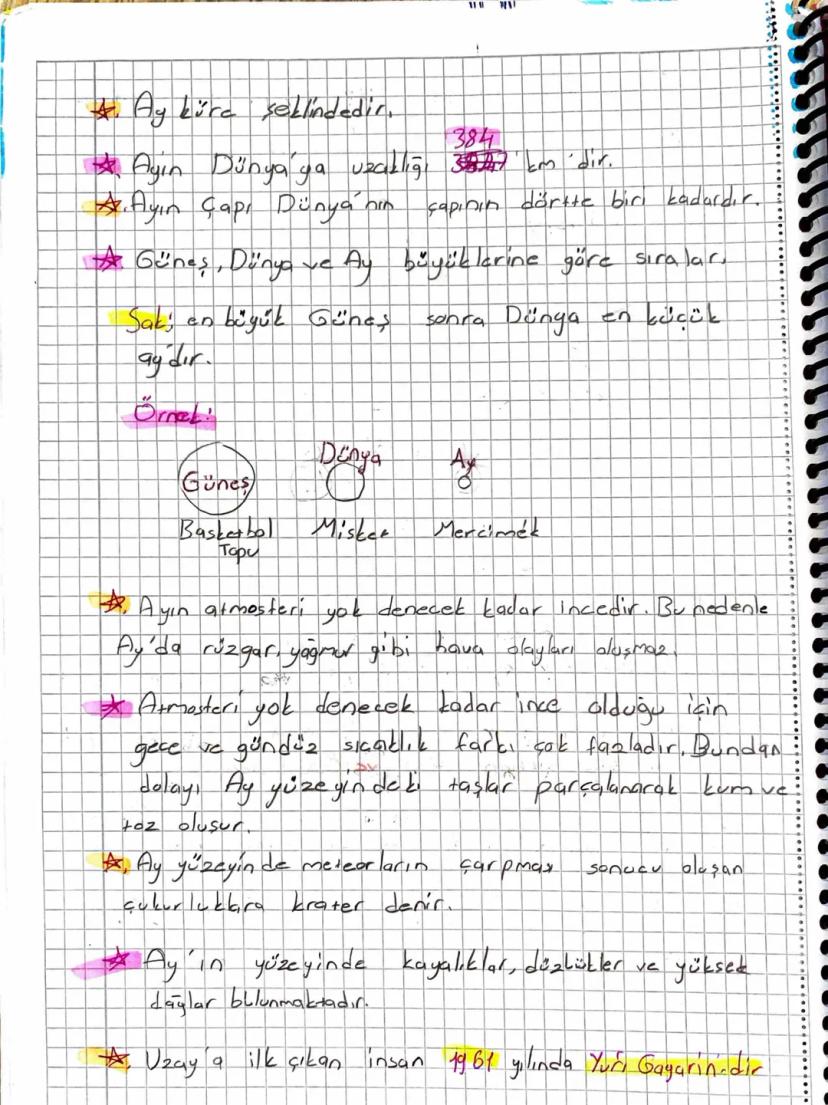 Ay küre şeklindedir.
384
Ayın Dünya'ya uzaklığı km'dir.
Ayın Çapı Dünya'nın çapının dörtte biri kadardır.
Güneş, Dünya ve Ay büyüklerine göre sıralar.
en büyük Güneş sonra Dünya en küçük
ay'dır.
Örnek:
Güneş Dünya Ay
Basketbol Misket Mercimek
Topu
Ayın atmosferi yok denecek kadar incedir. Bu nedenle
Ay'da rüzgar, yağmur gibi hava olayları oluşmaz.
Atmosferi yok denecek kadar ince olduğu için
gece ve gündüz sıcaklık farkı çok fazladır. Bundan
dolayı Ay yüzeyindeki taşlar parçalanarak kum ve
toz oluşur.
Ay yüzeyinde meteorların çarpması sonucu oluşan
çukurluklara krater denir.
Ay'ın yüzeyinde kayalıklar, düzlükler ve yüksek
dağlar bulunmaktadır.
Uzay'a ilk çıkan insan 1961 yılında Yuri Gagarin'dir